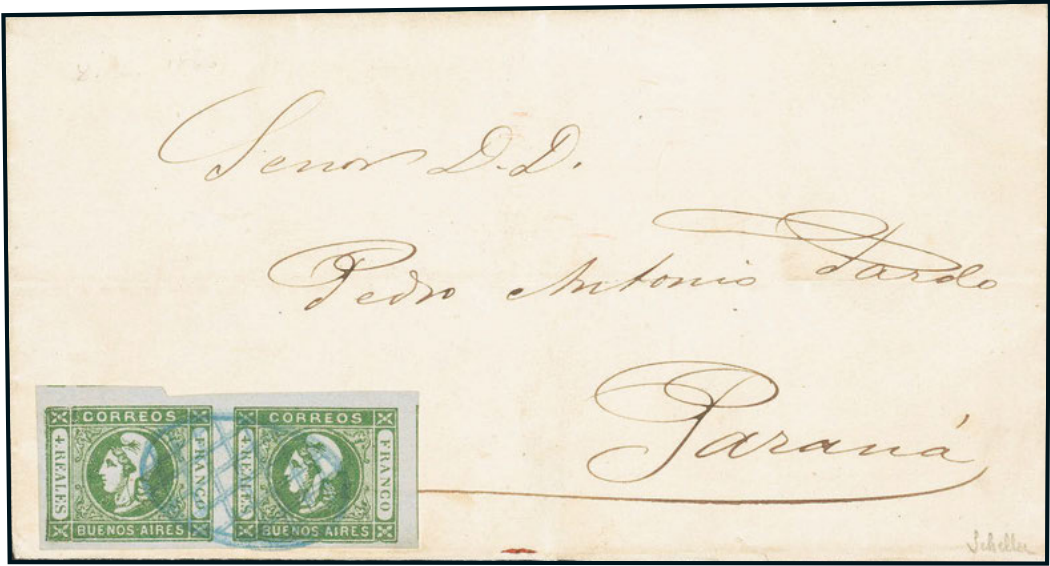 Senor D.D.
Pedro Antonio Pardo
Paraná
CORREOS
4 REALES
FRANCO
BUENOS AIRES
CORREOS
4 REALES
FRANCO
BUENOS AIRES
Scheller